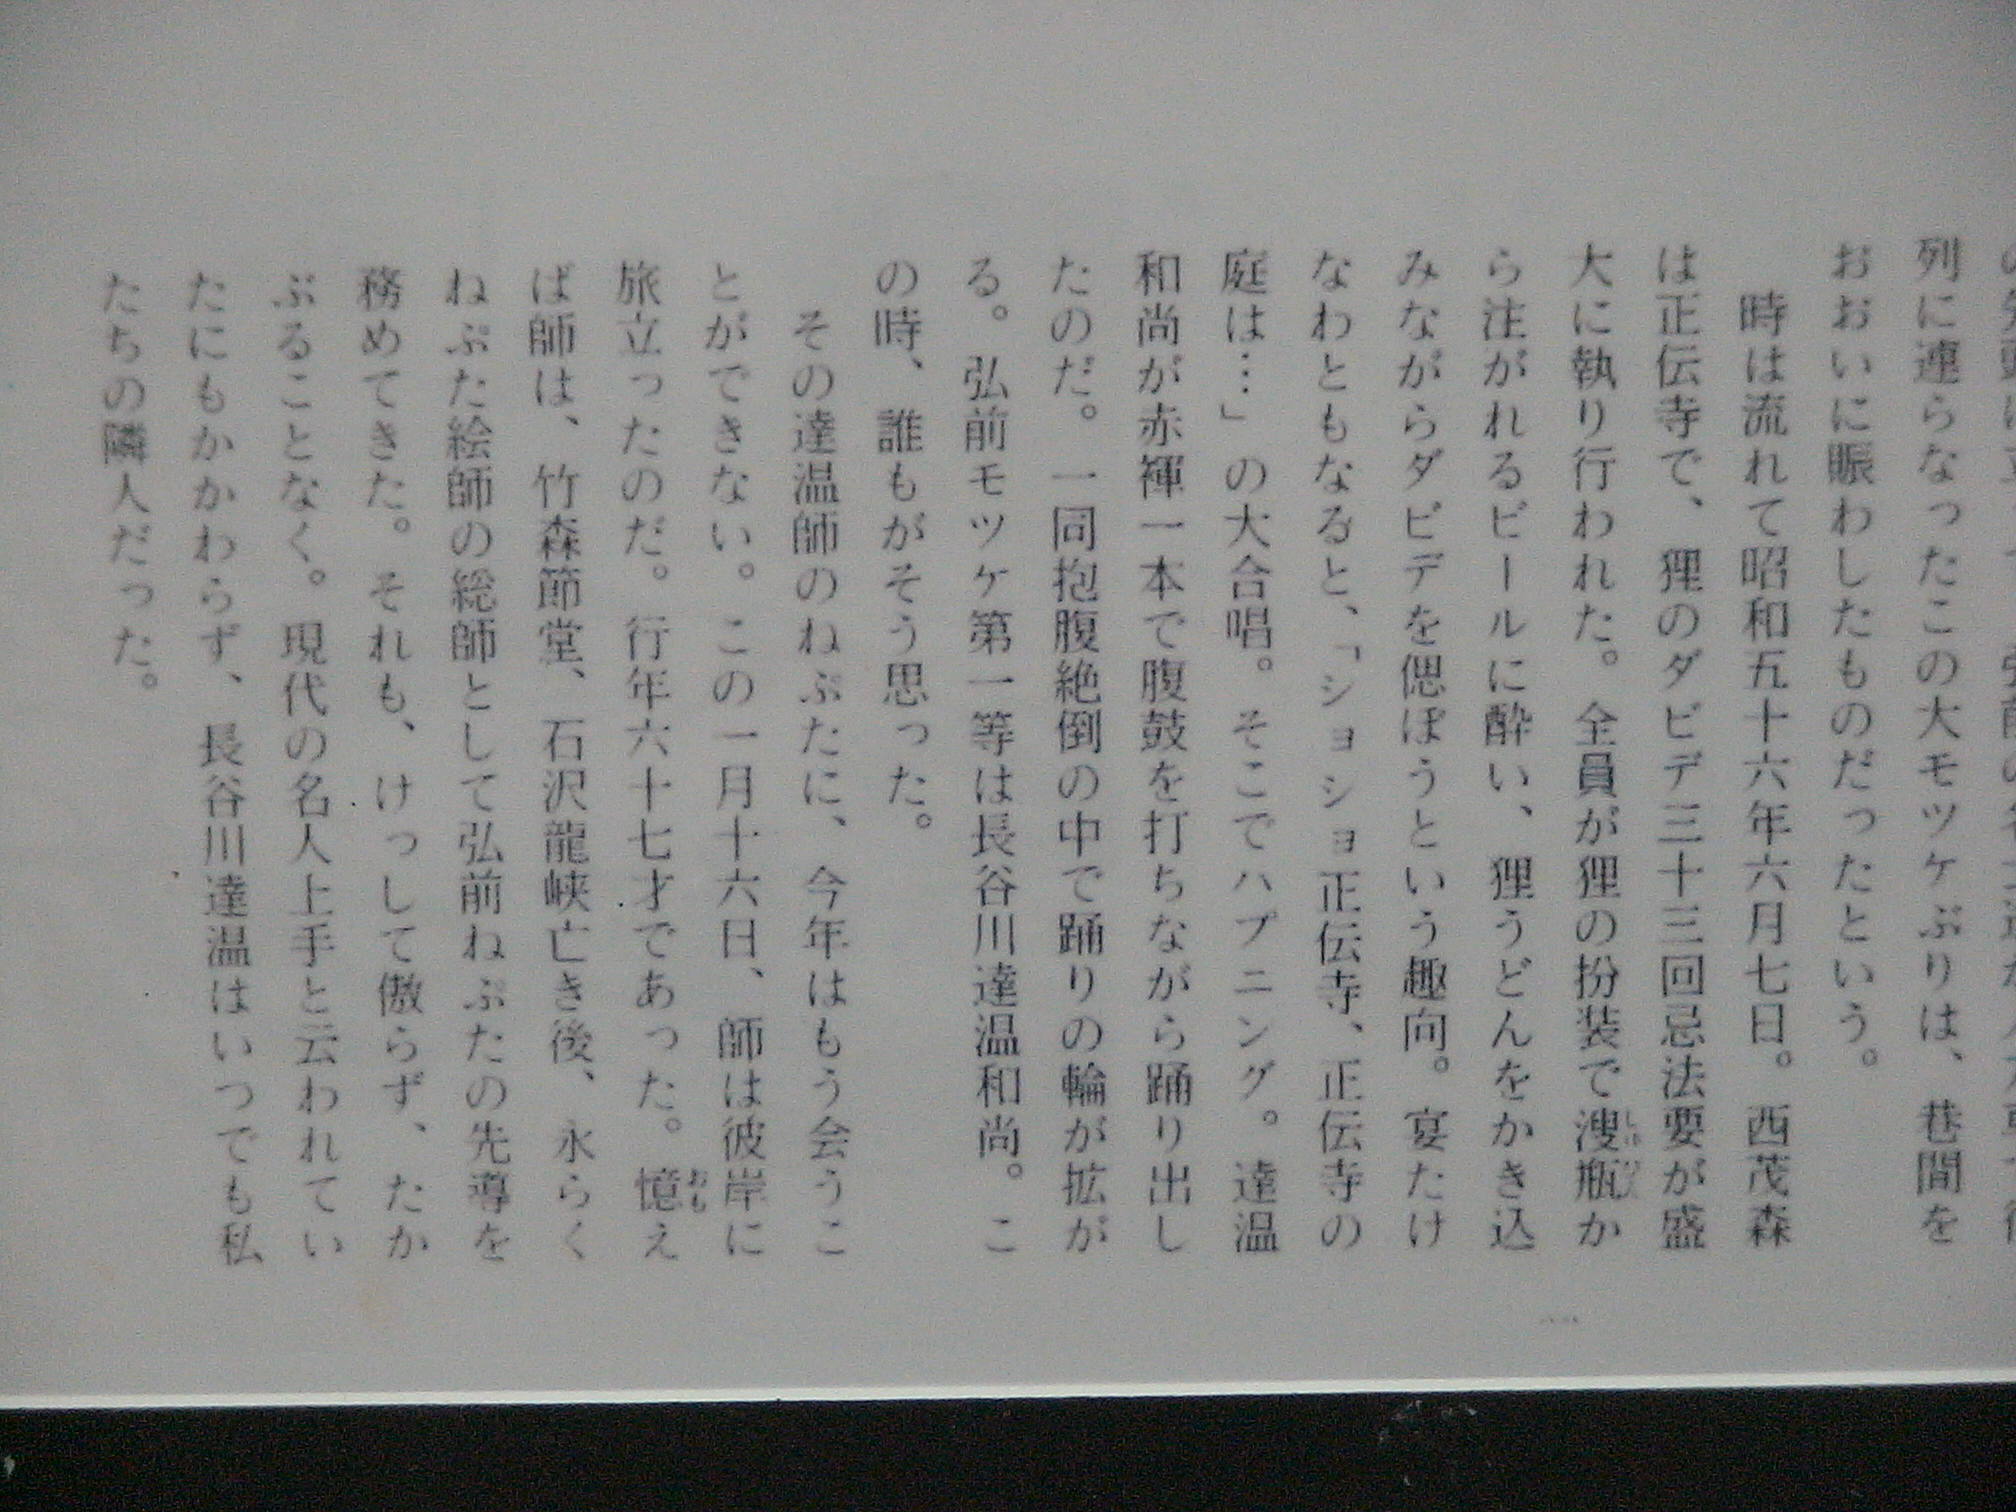 列に連らなったこの大モツケぶりは、巷間を
おおいに賑わしたものだったという。
時は流れて昭和五十六年六月七日。西茂森
は正伝寺で、狸のダビデ三十三回忌法要が盛
大に執り行われた。全員が狸の扮装で溲瓶か
ら注がれるビールに酔い、狸うどんをかき込
みながらダビデを偲ぼうという趣向。宴たけ
なわともなると、「ショショ正伝寺、正伝寺の
庭は…」の大合唱。そこでハプニング。達温
和尚が赤褌一本で腹鼓を打ちながら踊り出し
たのだ。一同抱腹絶倒の中で踊りの輪が拡が
る。弘前モツケ第一等は長谷川達温和尚。こ
の時、誰もがそう思った。
その達温師のねぷたに、今年はもう会うこ
とができない。この一月十六日、師は彼岸に
旅立ったのだ。行年六十七才であった。憶え
ば師は、竹森節堂、石沢龍峡亡き後、永らく
ねぷた絵師の総師として弘前ねぷたの先導を
務めてきた。それも、けっして傲らず、たか
ぶることなく。現代の名人上手と云われてい
たにもかかわらず、長谷川達温はいつでも私
たちの隣人だった。